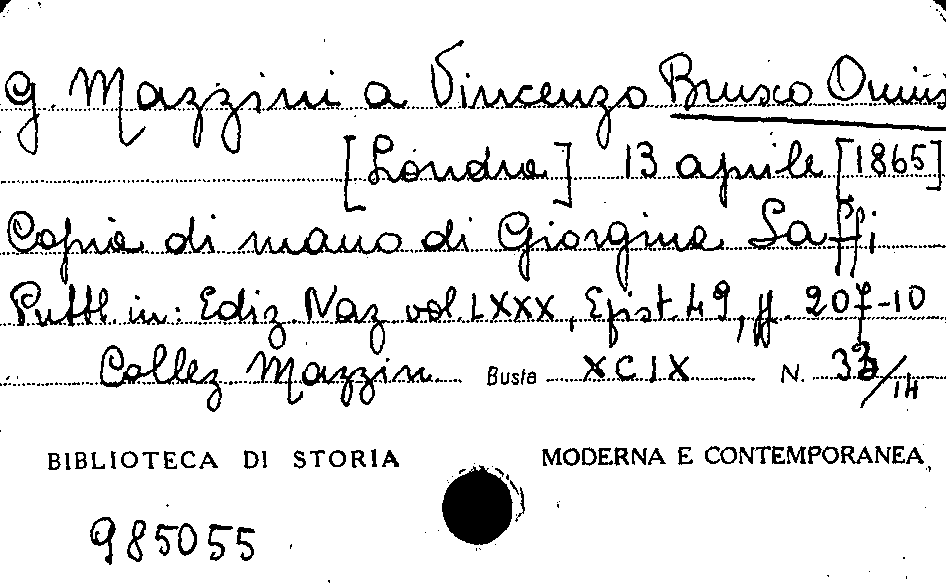 G. Mazzini a Vincenzo Brusco Onnis
[Londra] 13 aprile [1865]
Copia di mano di Giorgina Saffi
Pubbl. in: Ediz. Naz. vol. LXXX, Epist. 49, pp. 207-10
Collez. Mazzin. Busta XCIX N. 33/14
BIBLIOTECA DI STORIA MODERNA E CONTEMPORANEA
985055